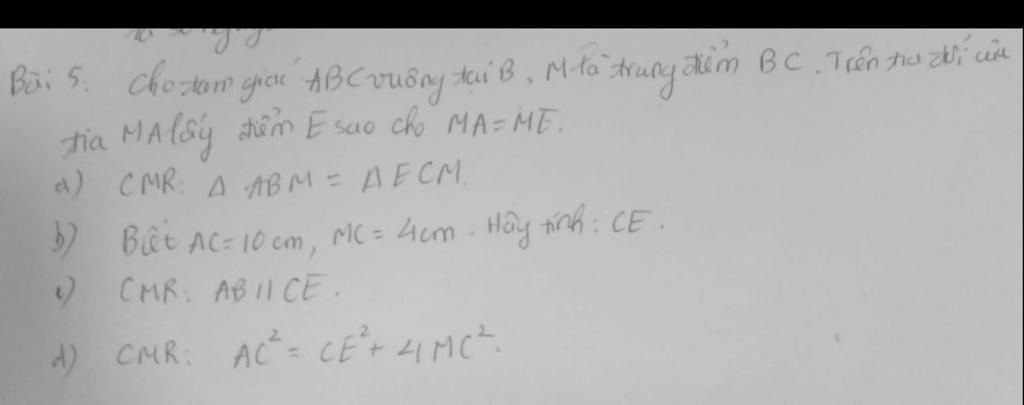 Bài 5. Cho tam giác ABC vuông tại B, M là trung điểm BC. Trên tia đối của
tia MA lấy điểm E sao cho MA=ME.
a) CMR: Δ ABM = Δ ECM.
b) Biết AC=10cm, MC=4cm. Hãy tính: CE.
c) CMR: AB//CE.
d) CMR: AC² = CE² + 4MC².